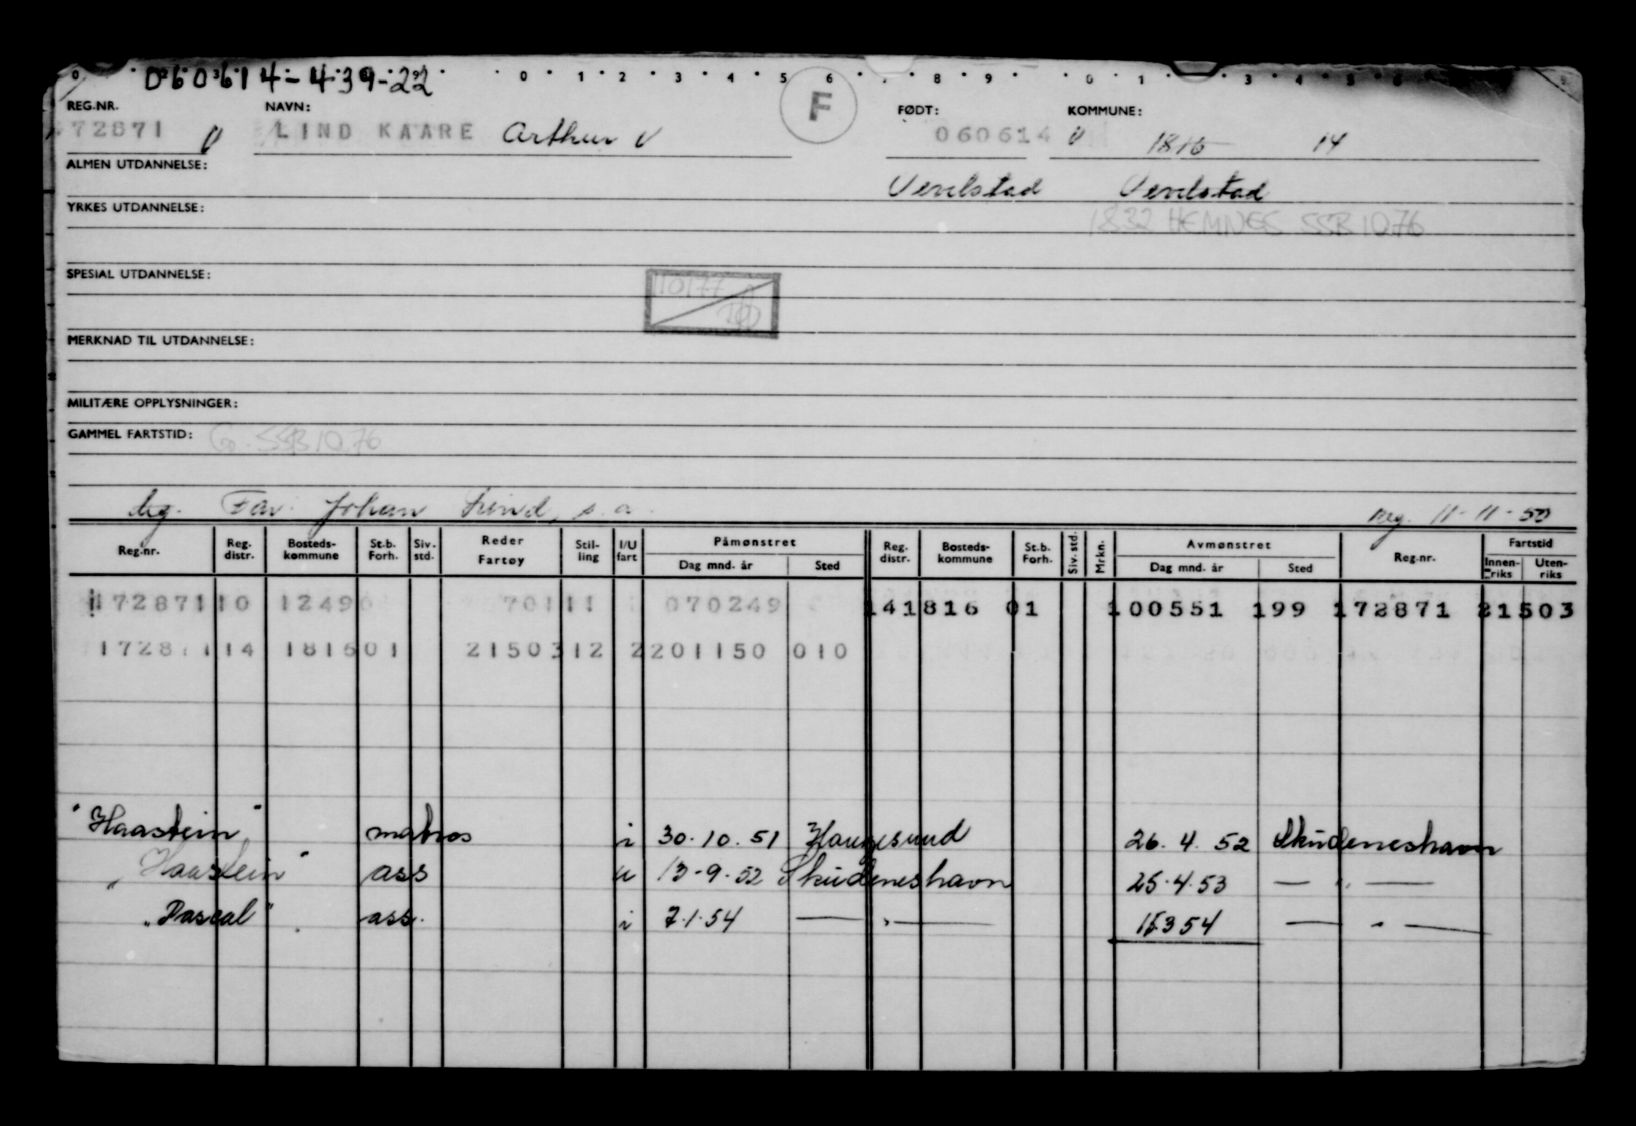 060614-439-22
REG.NR. NAVN: F FØDT: KOMMUNE:
172871 LIND KAARE Arthur 060614 1816 14
ALMEN UTDANNELSE: Vevelstad Vevelstad
YRKES UTDANNELSE:
1832 HEMNES SSB 1076
SPESIAL UTDANNELSE:
110177
MERKNAD TIL UTDANNELSE:
MILITÆRE OPPLYSNINGER:
GAMMEL FARTSTID: SSB 1076
Far: Johan Lind, s.a. 11-11-50
Reg.nr. Reg. distr. Bosteds-kommune St.b. Forh. Siv. std. Reder Fartøy Stil-ling I/U fart Påmønstret Dag mnd. år Sted Reg. distr. Bosteds-kommune St.b. Forh. Siv. std. Mrkn. Avmønstret Dag mnd. år Sted Reg.nr. Fartstid Innen-riks Uten-riks
172871 10 12490 70111 1 070249 141816 01 100551 199 172871 21503
172871 14 181601 21503 12 2 201150 010
"Haastein" matros i 30.10.51 Haugesund 26.4.52 Skudeneshavn
"Haastein" ass u 13-9-52 Skudeneshavn 25.4.53 — " —
"Pascal" ass. i 7.1.54 — " — 15.3.54 — " —